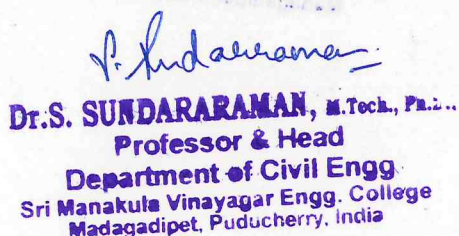 S. Sundararaman
Dr.S. SUNDARARAMAN, M.Tech., Ph.D.,
Professor & Head
Department of Civil Engg.
Sri Manakula Vinayagar Engg. College
Madagadipet, Puducherry, India